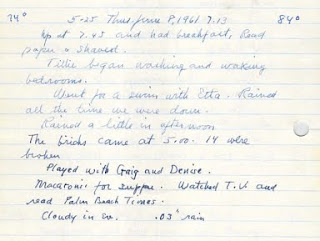 74° 5-25 Thus, June 8, 1961 7.13 84°
Up at 7.45 and had breakfast. Read
paper & shaved.
Tillie began washing and waxing
bedrooms.
Went for a swim with Etta. Rained
all the time we were down.
Rained a little in afternoon
The bricks came at 5.00. 14 were
broken
Played with Craig and Denise.
Macaroni for supper. Watched T.V. and
read Palm Beach Times.
Cloudy in eve. .03" rain